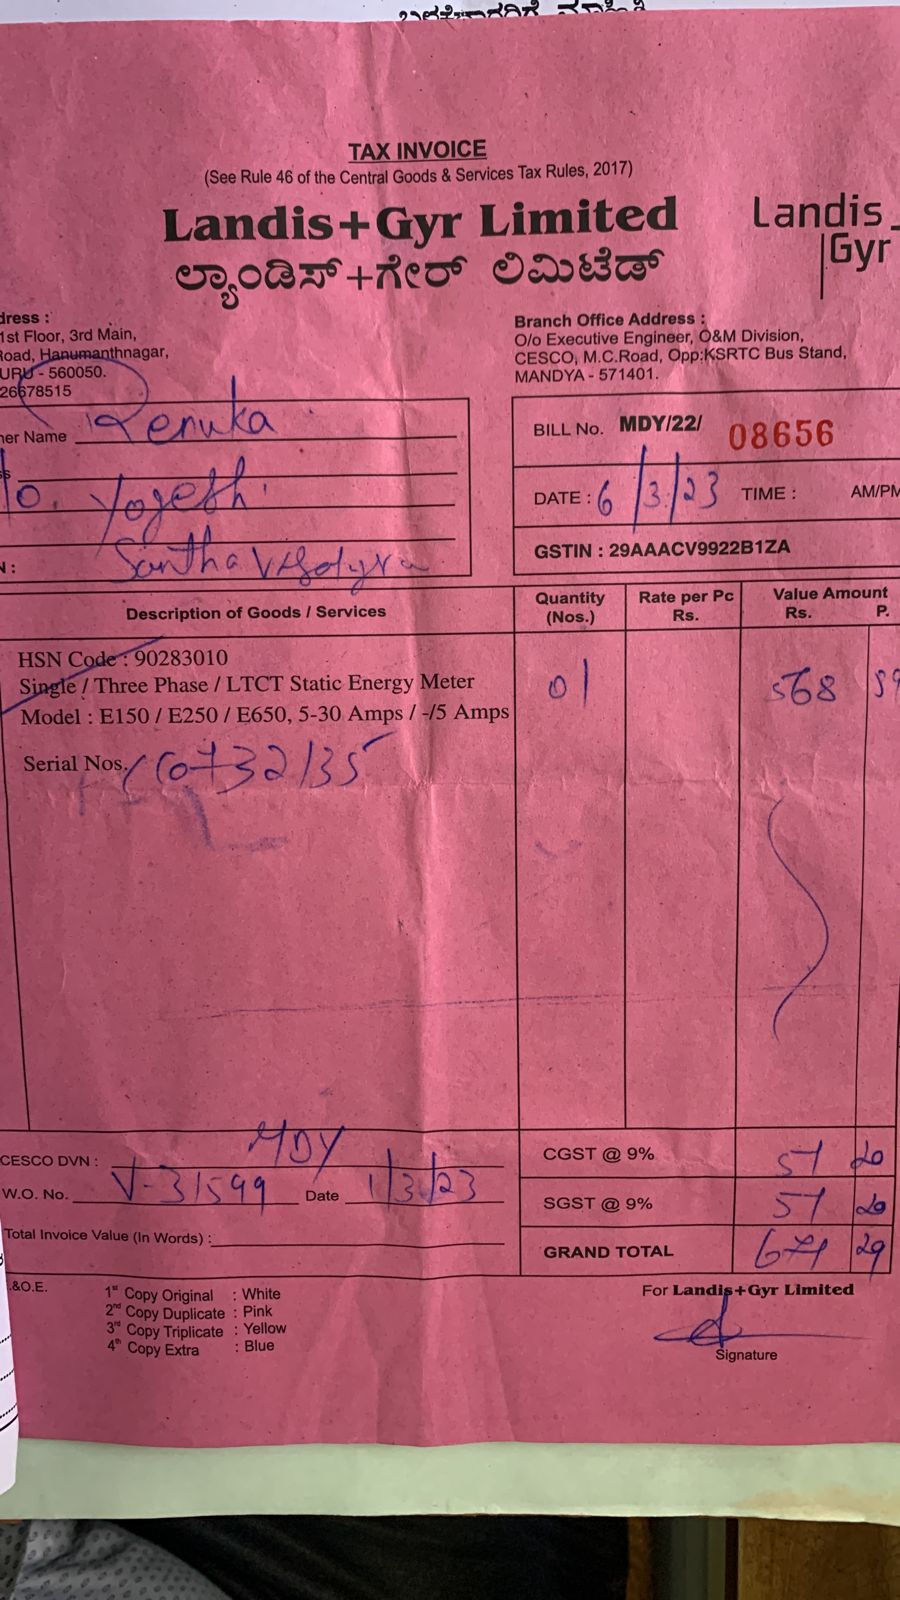 TAX INVOICE
(See Rule 46 of the Central Goods & Services Tax Rules, 2017)
Landis+Gyr Limited
ಲ್ಯಾಂಡಿಸ್+ಗೇರ್ ಲಿಮಿಟೆಡ್
Landis
Gyr
dress :
1st Floor, 3rd Main,
Road, Hanumanthnagar,
URU - 560050.
26678515
Branch Office Address :
O/o Executive Engineer, O&M Division,
CESCO, M.C.Road, Opp:KSRTC Bus Stand,
MANDYA - 571401.
ner Name Renuka
o. Yogesh
N :
BILL No. MDY/22/ 08656
DATE : 6/3/23 TIME : AM/PM
GSTIN : 29AAACV9922B1ZA
Description of Goods / Services Quantity (Nos.) Rate per Pc Rs. Value Amount Rs. P.
HSN Code : 90283010
Single / Three Phase / LTCT Static Energy Meter 01 568 59
Model : E150 / E250 / E650, 5-30 Amps / -/5 Amps
Serial Nos.
CESCO DVN : MDY
W.O. No. V-31599 Date 1/3/23
Total Invoice Value (In Words) :
CGST @ 9% 51 20
SGST @ 9% 51 20
GRAND TOTAL 671 29
.&O.E.
1st Copy Original : White
2nd Copy Duplicate : Pink
3rd Copy Triplicate : Yellow
4th Copy Extra : Blue
For Landis+Gyr Limited
Signature